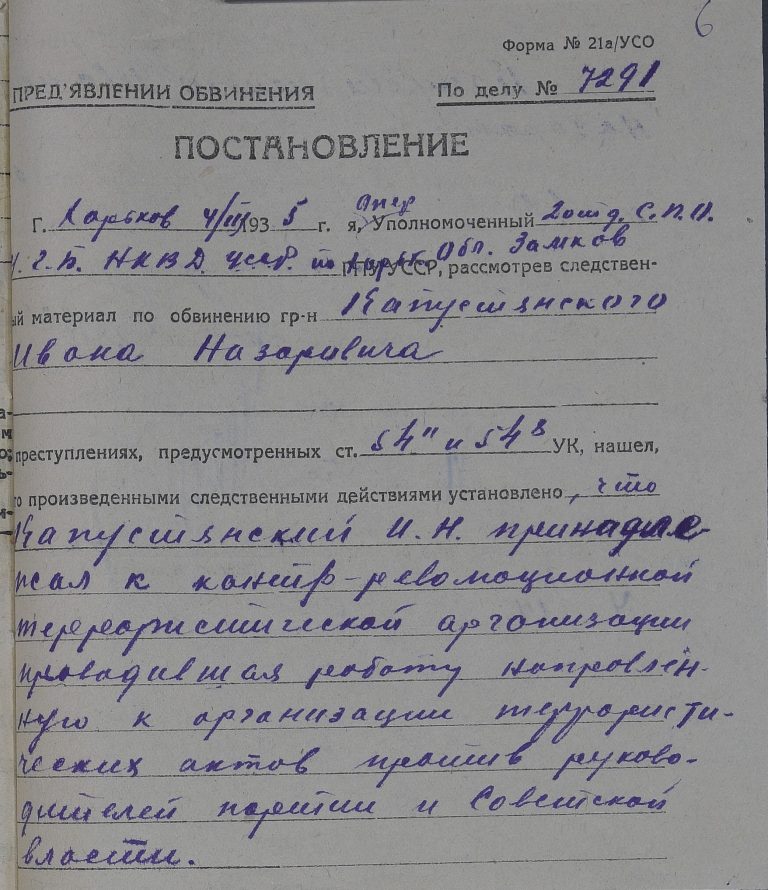 6
Форма № 21а/УСО
ПРЕД'ЯВЛЕНИИ ОБВИНЕНИЯ По делу № 7291
ПОСТАНОВЛЕНИЕ
Г. Харьков 4/III 1935 г. я, Опер Уполномоченный 2 отд. С.П.О.
У.Г.Б. НКВД УССР. по Харьк. Обл. Замков
ГПУ УССР, рассмотрев следствен-
ый материал по обвинению гр-н Капустянского
Ивана Назаровича
преступлениях, предусмотренных ст. 54¹¹ и 54⁸ УК, нашел,
о произведенными следственными действиями установлено, что
Капустянский И. Н. принадле-
жал к контр-революционной
террористической организации
проводившая работу направлен-
ную к организации террористи-
ческих актов против руково-
дителей партии и Советской
власти.